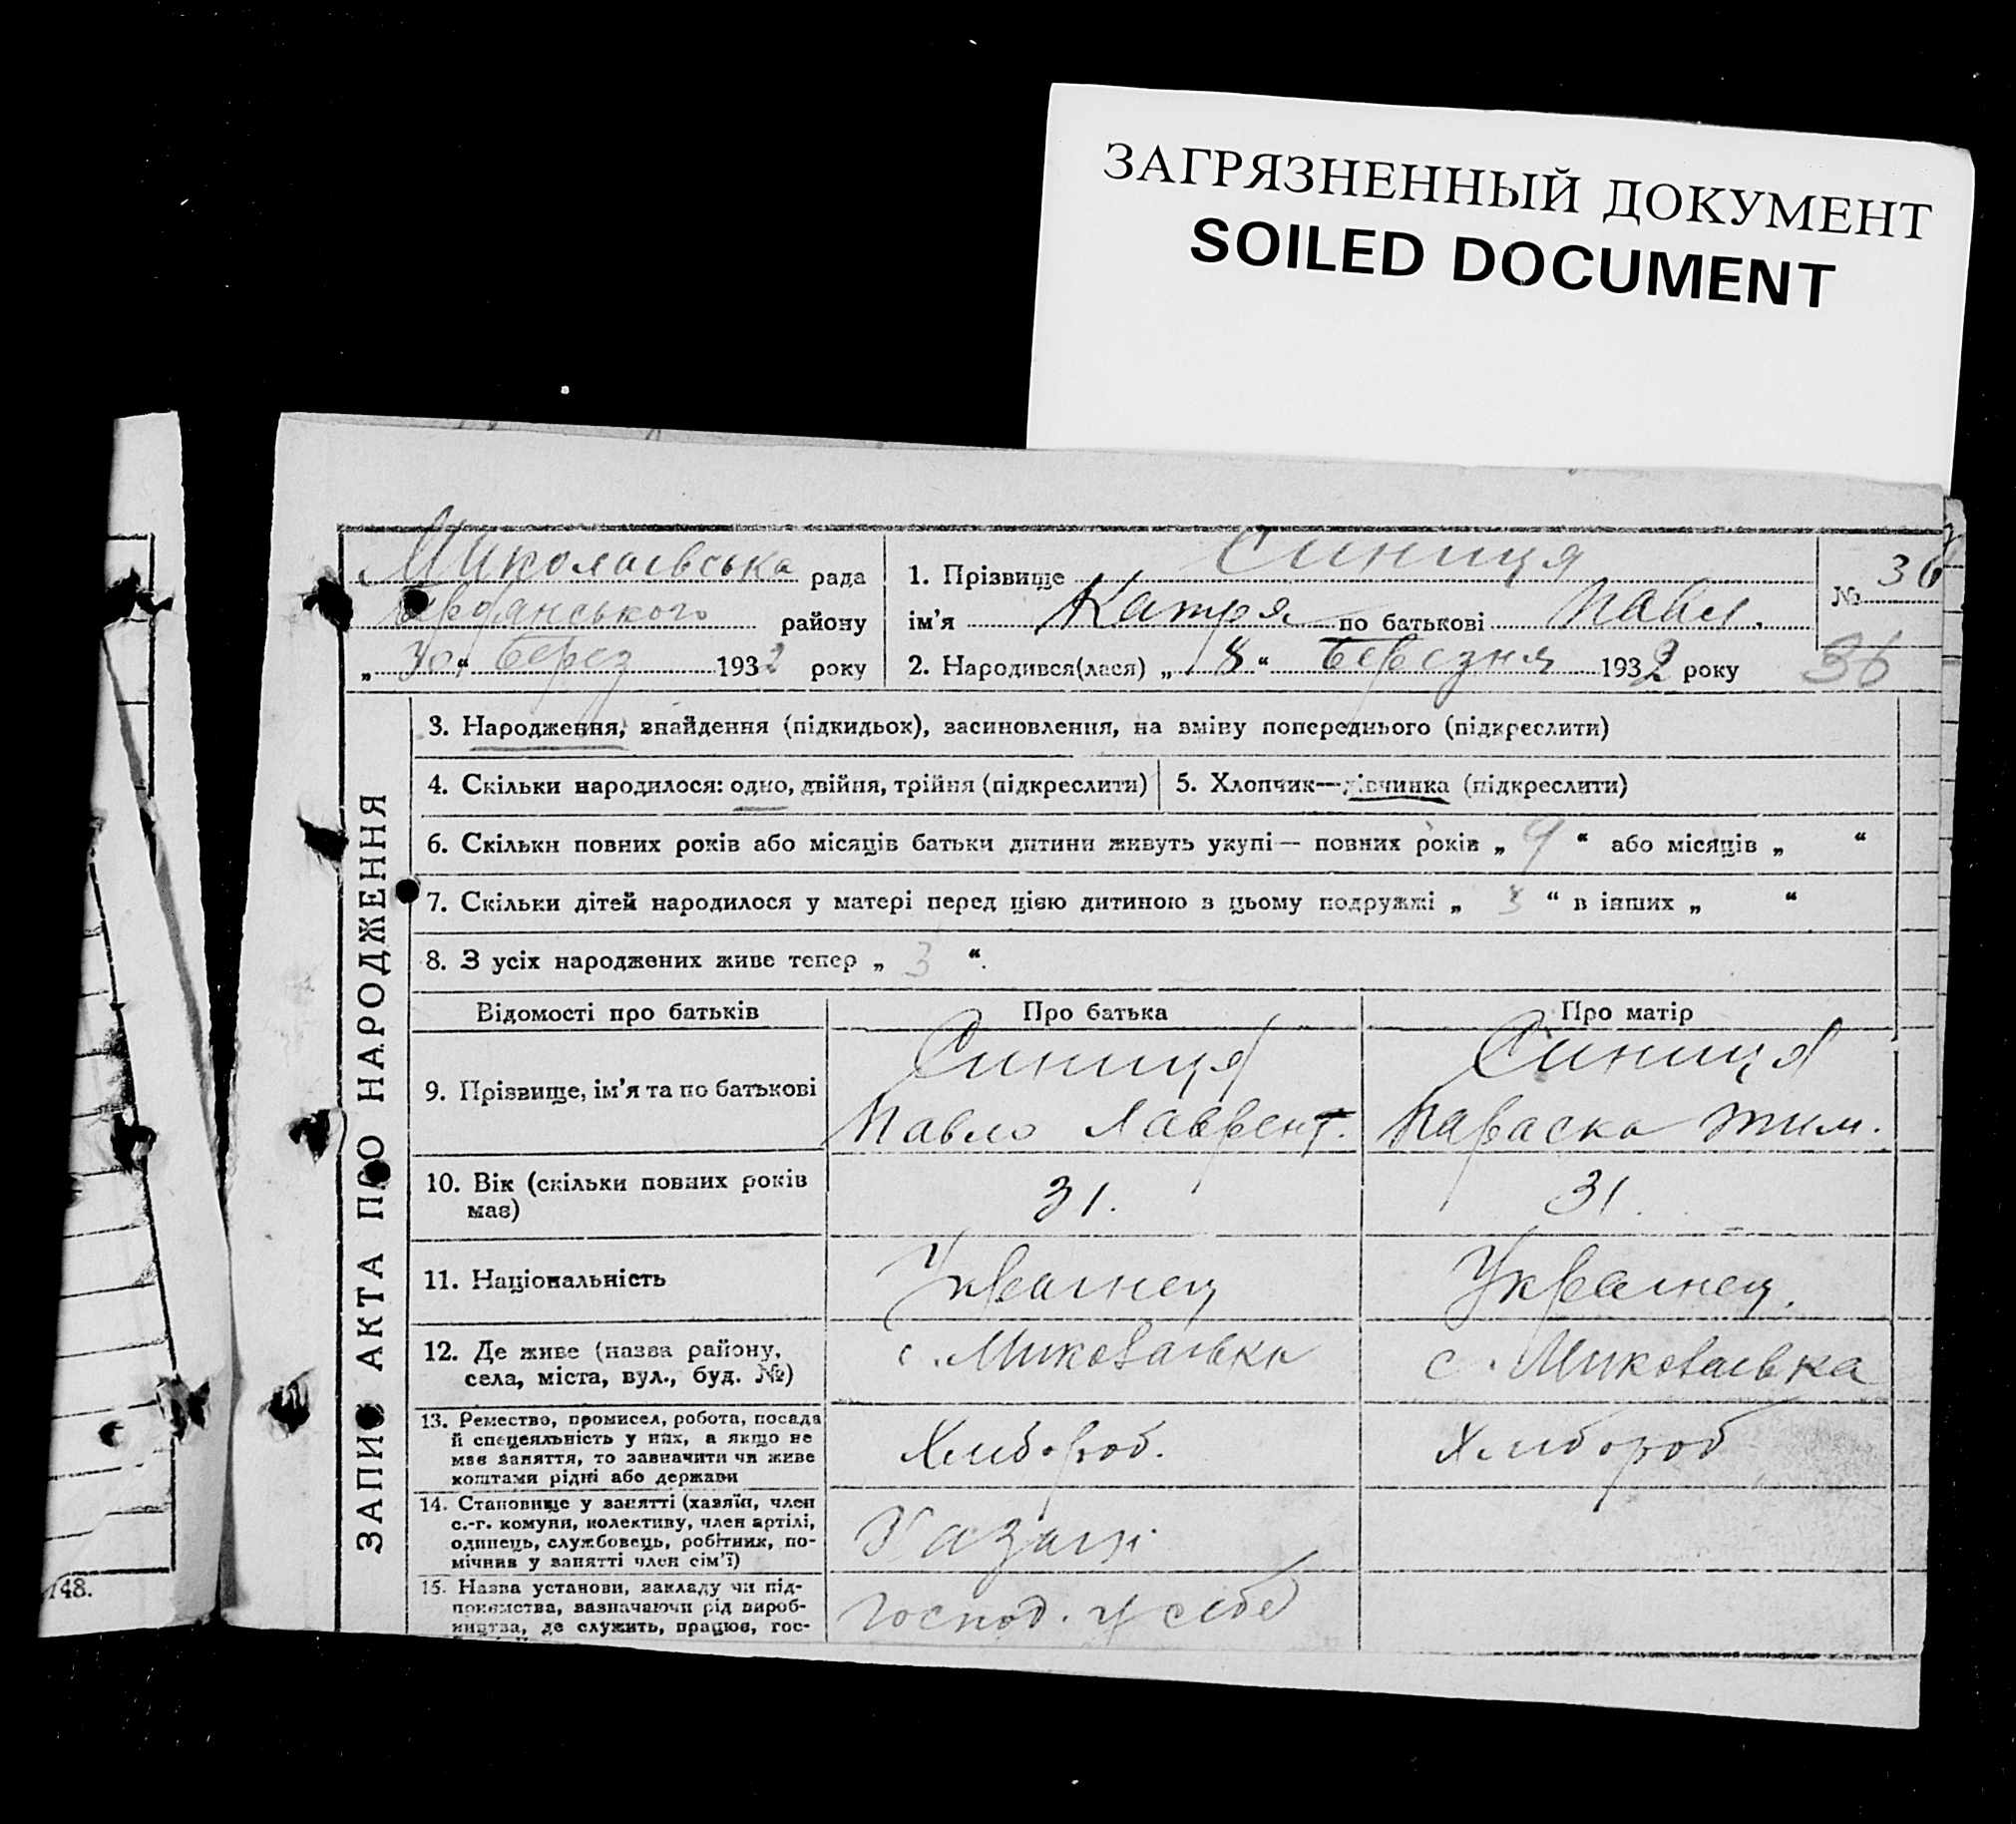 ЗАГРЯЗНЕННЫЙ ДОКУМЕНТ
SOILED DOCUMENT
Миколаївська рада
Бердянського району
„30“ Берез 1932 року
1. Прізвище Синиця
ім'я Катря по батькові Павл.
2. Народився(лася) „8“ Березня 1932 року
№ 36
36
ЗАПИС АКТА ПРО НАРОДЖЕННЯ
3. Народження, знайдення (підкидьок), засиновлення, на зміну попереднього (підкреслити)
4. Скільки народилося: одно, двійня, трійня (підкреслити)
5. Хлопчик—дівчинка (підкреслити)
6. Скільки повних років або місяців батьки дитини живуть укупі— повних років „ 9 “ або місяців „ “
7. Скільки дітей народилося у матері перед цією дитиною в цьому подружжі „ 3 “ в інших „ “
8. З усіх народжених живе тепер „ 3 “.
Відомості про батьків
Про батька
Про матір
9. Прізвище, ім'я та по батькові
Синиця
Павло Лаврент.
Синиця
Параска Тим.
10. Вік (скільки повних років
має)
31.
31.
11. Національність
Украинец
Украинец.
12. Де живе (назва району,
села, міста, вул., буд. №)
с. Миколаівка
с. Миколаівка
13. Ремество, промисел, робота, посада
й спецеяльність у них, а якщо не
має заняття, то зазначити чи живе
коштами рідні або держави
Хлибороб.
Хлибороб
14. Становище у занятті (хазяїн, член
с.-г. комуни, колективу, член артілі,
одинець, службовець, робітник, по-
мічник у занятті член сім'ї)
15. Назва установи, закладу чи під-
приємства, зазначаючи рід вироб-
ництва, де служить, працює, гос-
господ. у себе
148.